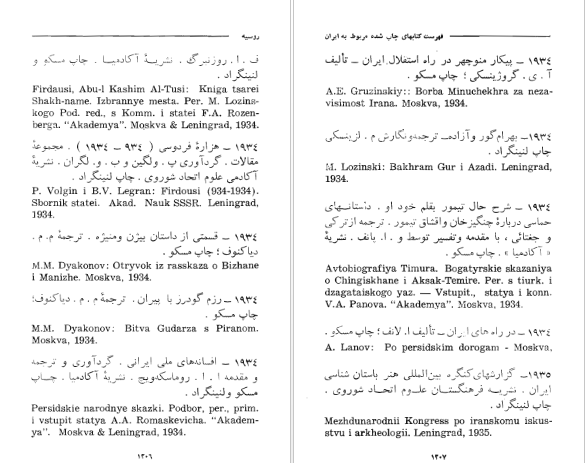 روسیه
ف . ا . روزنبرگ . نشریهٔ آکادمیا . چاپ مسکو و
لنینگراد .
Firdausi, Abu-l Kashim Al-Tusi: Kniga tsarei
Shakh-name. Izbrannye mesta. Per. M. Lozins-
kogo Pod. red., s Komm. i statei F.A. Rozen-
berga. "Akademya". Moskva & Leningrad, 1934.
۱۹۳۴ ــ هزارهٔ فردوسی ( ۹۳۴ – ۱۹۳۴ ) . مجموعهٔ
مقالات . گردآوری پ . ولگین و ب . و . لگران . نشریهٔ
آکادمی علوم اتحاد شوروی . چاپ لنینگراد .
P. Volgin i B.V. Legran: Firdousi (934-1934).
Sbornik statei. Akad. Nauk SSSR. Leningrad,
1934.
۱۹۳۴ ــ قسمتی از داستان بیژن ومنیژه . ترجمهٔ م . م .
دیاکنوف ؛ چاپ مسکو .
M.M. Dyakonov: Otryvok iz rasskaza o Bizhane
i Manizhe. Moskva, 1934.
۱۹۳۴ ــ رزم گودرز با پیران . ترجمهٔ م . م . دیاکنوف؛
چاپ مسکو .
M.M. Dyakonov: Bitva Gudarza s Piranom.
Moskva, 1934.
۱۹۳۴ ــ افسانه‌های ملی ایرانی . گردآوری و ترجمه
و مقدمه ا . ا . روماسکه‌ویچ . نشریهٔ آکادمیا . چاپ
مسکو ولنینگراد .
Persidskie narodnye skazki. Podbor, per., prim.
i vstupit statya A.A. Romaskevicha. "Akadem-
ya". Moskva & Leningrad, 1934.
۱۲۰۶
فهرست کتابهای چاپ شده مربوط به ایران
۱۹۳۴ ــ پیکار منوچهر در راه استقلال ایران ــ تألیف
آ . ی . گروژینسکی ؛ چاپ مسکو .
A.E. Gruzinskiy:: Borba Minuchekhra za neza-
visimost Irana. Moskva, 1934.
۱۹۳۴ــ بهرام گور وآزاده ــ ترجمه‌ونگارش م . لزینسکی
چاپ لنینگراد .
M. Lozinski: Bakhram Gur i Azadi. Leningrad,
1934.
۱۹۳۴ ــ شرح حال تیمور بقلم خود او . داستانهای
حماسی دربارهٔ چنگیزخان واقشاق تیمور . ترجمه ازترکی
و جغتائی ، با مقدمه وتفسیر توسط و . ا . پانف . نشریهٔ
« آکادمیا » . چاپ مسکو .
Avtobiografiya Timura. Bogatyrskie skazaniya
o Chingiskhane i Aksak-Temire. Per. s tiurk. i
dzagataiskogo yaz. — Vstupit., statya i konn.
V.A. Panova. "Akademya". Moskva, 1934.
۱۹۳۴ ــ در راه های ایران ــ تألیف ا . لانف ؛ چاپ مسکو .
A. Lanov: Po persidskim dorogam - Moskva,
۱۹۳۵ــ گزارشهای کنگره بین‌المللی هنر باستان شناسی
ایران . نشریه فرهنگستان علوم اتحاد شوروی .
چاپ لنینگراد .
Mezhdunarodnii Kongress po iranskomu iskus-
stvu i arkheologii. Leningrad, 1935.
۱۲۰۷